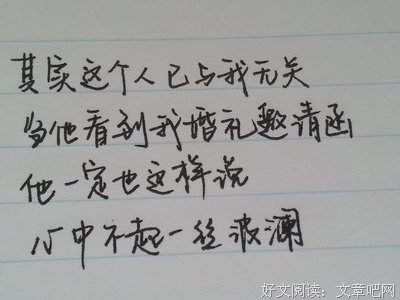 其实这个人已与我无关
当他看到我婚礼邀请函
他一定也这样说
心中不起一丝波澜
好文阅读：文章吧网